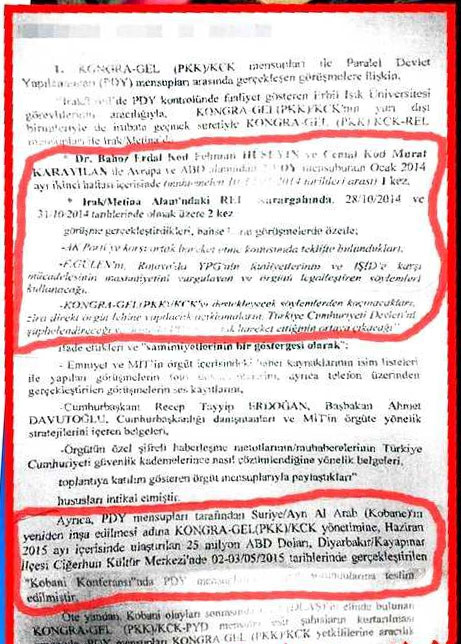 1. KONGRA-GEL (PKK)/KCK mensupları ile Paralel Devlet
Yapılanması (PDY) mensupları arasında gerçekleşen görüşmelere ilişkin,
PDY kontrolünde faaliyet gösteren Işık Üniversitesi
görevlilerinin aracılığıyla, KONGRA-GEL(PKK)/KCK'nın yurt dışı
ile irtibata geçmek suretiyle KONGRA-GEL (PKK)/KCK-REL
mensupları ile Irak/Metina'da
* Dr. Bahoz Erdal Kod Fehman HÜSEYİN ve Cemal Kod Murat
KARAYILAN ile Avrupa ve ABD alanından PDY mensubunun Ocak 2014
ayı ikinci haftası içerisinde tarihleri arası) 1 kez,
* Irak/Metina Alanı'ndaki REL karargahında, 28/10/2014 ve
31/10/2014 tarihlerinde olmak üzere 2 kez
görüşme gerçekleştirdikleri, görüşmelerde özetle;
-AK Parti'ye karşı ortak hareket etme konusunda teklifte bulundukları,
-F.GÜLEN'in, Rojava'da YPG'nin faaliyetlerinin ve IŞİD'e karşı
mücadelesinin masumiyetini vurgulayan ve örgütü legalleştiren söylemleri
kullanacağı,
-KONGRA-GEL(PKK)/KCK'yı destekleyecek söylemlerden kaçınacakları,
zira direkt örgüt lehine yapılacak açıklamaların, Türkiye Cumhuriyeti Devleti'ni
şüphelendireceği hareket ettiğinin ortaya çıkacağı"
ifade ettikleri ve "samimiyetlerinin bir göstergesi olarak";
- Emniyet ve MİT'in örgüt içerisindeki haber kaynaklarının isim listeleri
ile yapılan görüşmelerin ayrıca telefon üzerinden
gerçekleştirilen görüşmelerin ses kayıtlarını,
-Cumhurbaşkanı Recep Tayyip ERDOĞAN, Başbakan Ahmet
DAVUTOĞLU, Cumhurbaşkanlığı danışmanları ve MİT'in örgüte yönelik
stratejilerini içeren belgeleri,
-Örgütün özel şifreli haberleşme metotlarının/muhaberelerinin Türkiye
Cumhuriyeti güvenlik kademelerince nasıl çözümlendiğine yönelik belgeleri,
toplantıya katılım gösteren örgüt mensuplarıyla paylaştıkları"
hususları intikal etmiştir.
Ayrıca, PDY mensupları tarafından Suriye/Ayn Al Arab (Kobane)'ın
yeniden inşa edilmesi adına KONGRA-GEL(PKK)/KCK yönetimine, Haziran
2015 ayı içerisinde ulaştırılan 25 milyon ABD Doları, Diyarbakır/Kayapınar
İlçesi Cigerhun Kültür Merkezi'nde 02-03/05/2015 tarihlerinde gerçekleştirilen
"Kobani Konferansı"nda PDY teslim
edilmiştir.
Öte yandan, Kobani olayları sonrasında elinde bulunan
KONGRA-GEL (PKK)/KCK-PYD mensubu esir şahısların kurtarılması
KONGRA GEL (PKK)/KCK yetkililerine aracılık